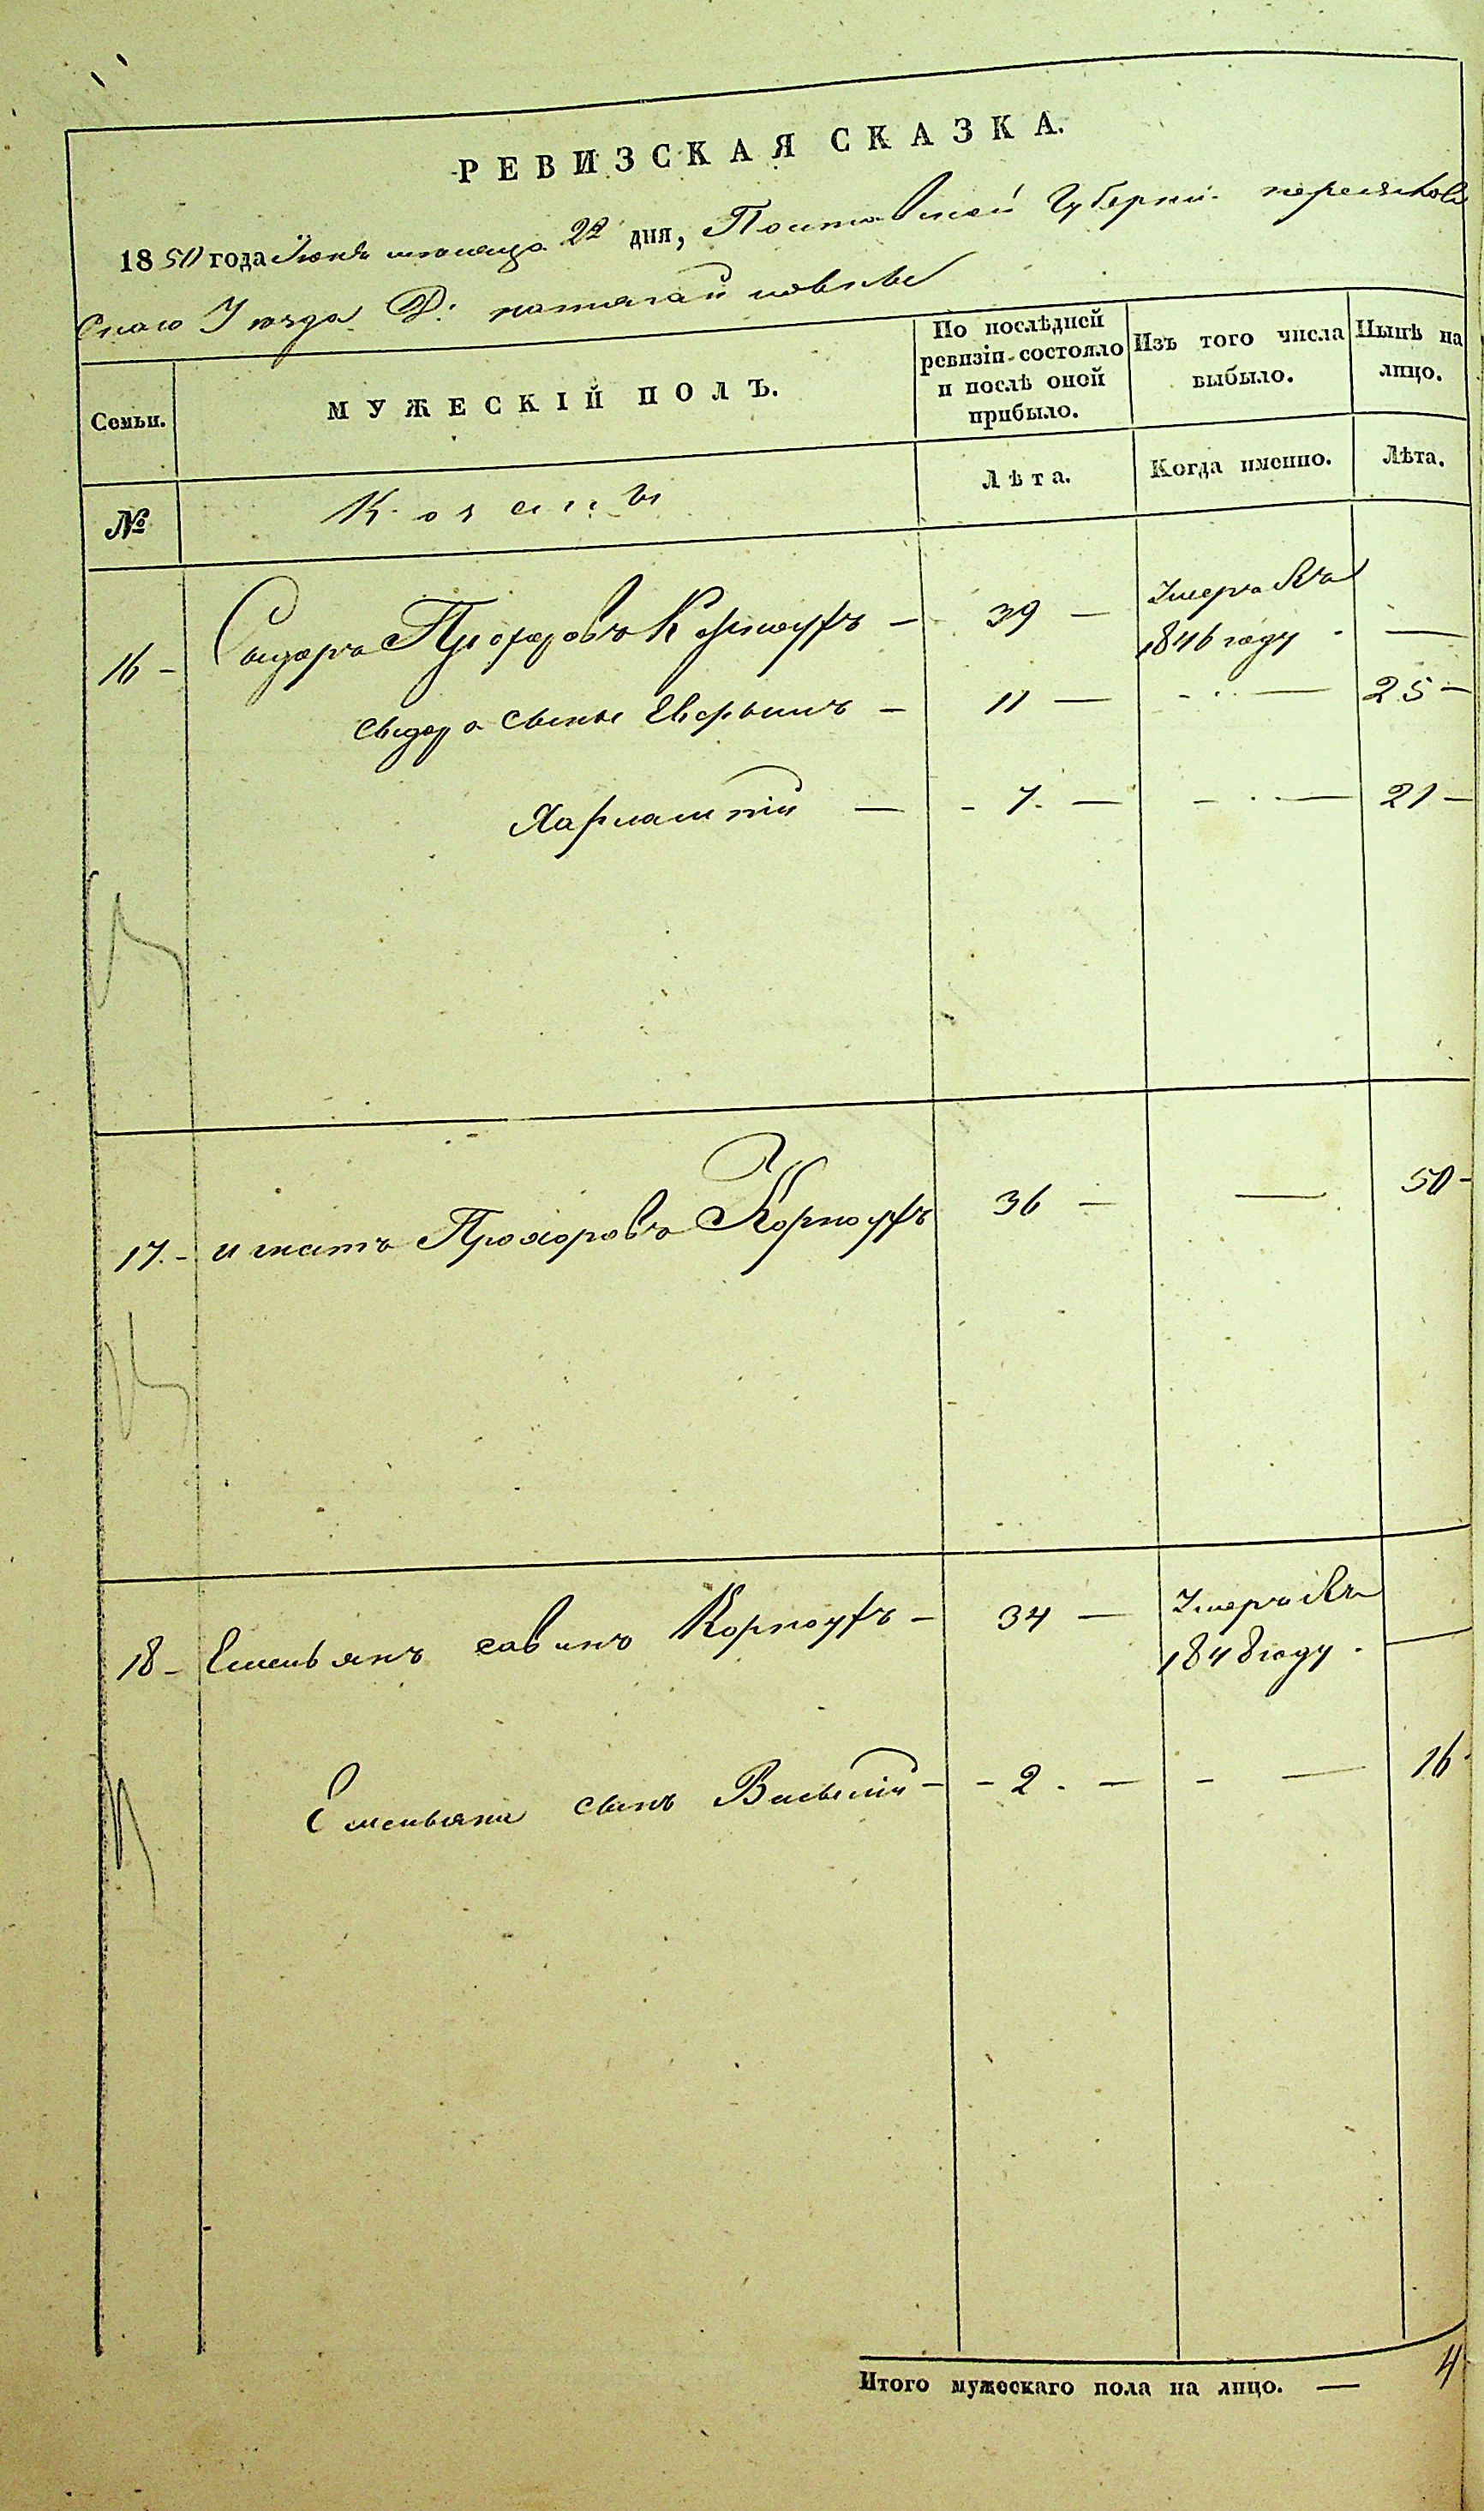 РЕВИЗСКАЯ СКАЗКА.
1850 года Июня месяца 22 дня, Полтавской Губерніи переяслов
скаго Уезда Д:
Семьи. МУЖЕСКІЙ ПОЛЪ. По послѣдней ревизіи состояло и послѣ оной прибыло. Изъ того числа выбыло. Нынѣ на лицо.
№ Козаки Лѣта. Когда именно. Лѣта.
16 - Сидоръ Прохоровъ Корноухъ - 39 - Умеръ въ 1846 году - —
Сидора сыны - 11 — - — 25 -
Харлампій — - 7. — - — 21 -
17. - игнатъ Прохоровъ Корноухъ 36 — — 50 -
18 - Емельянъ савинъ Корноухъ - 34 — Умеръ въ 1848 году - —
Емельяна сынъ Василій - - 2 - — - — 16
Итого мужескаго пола на лицо. — 4